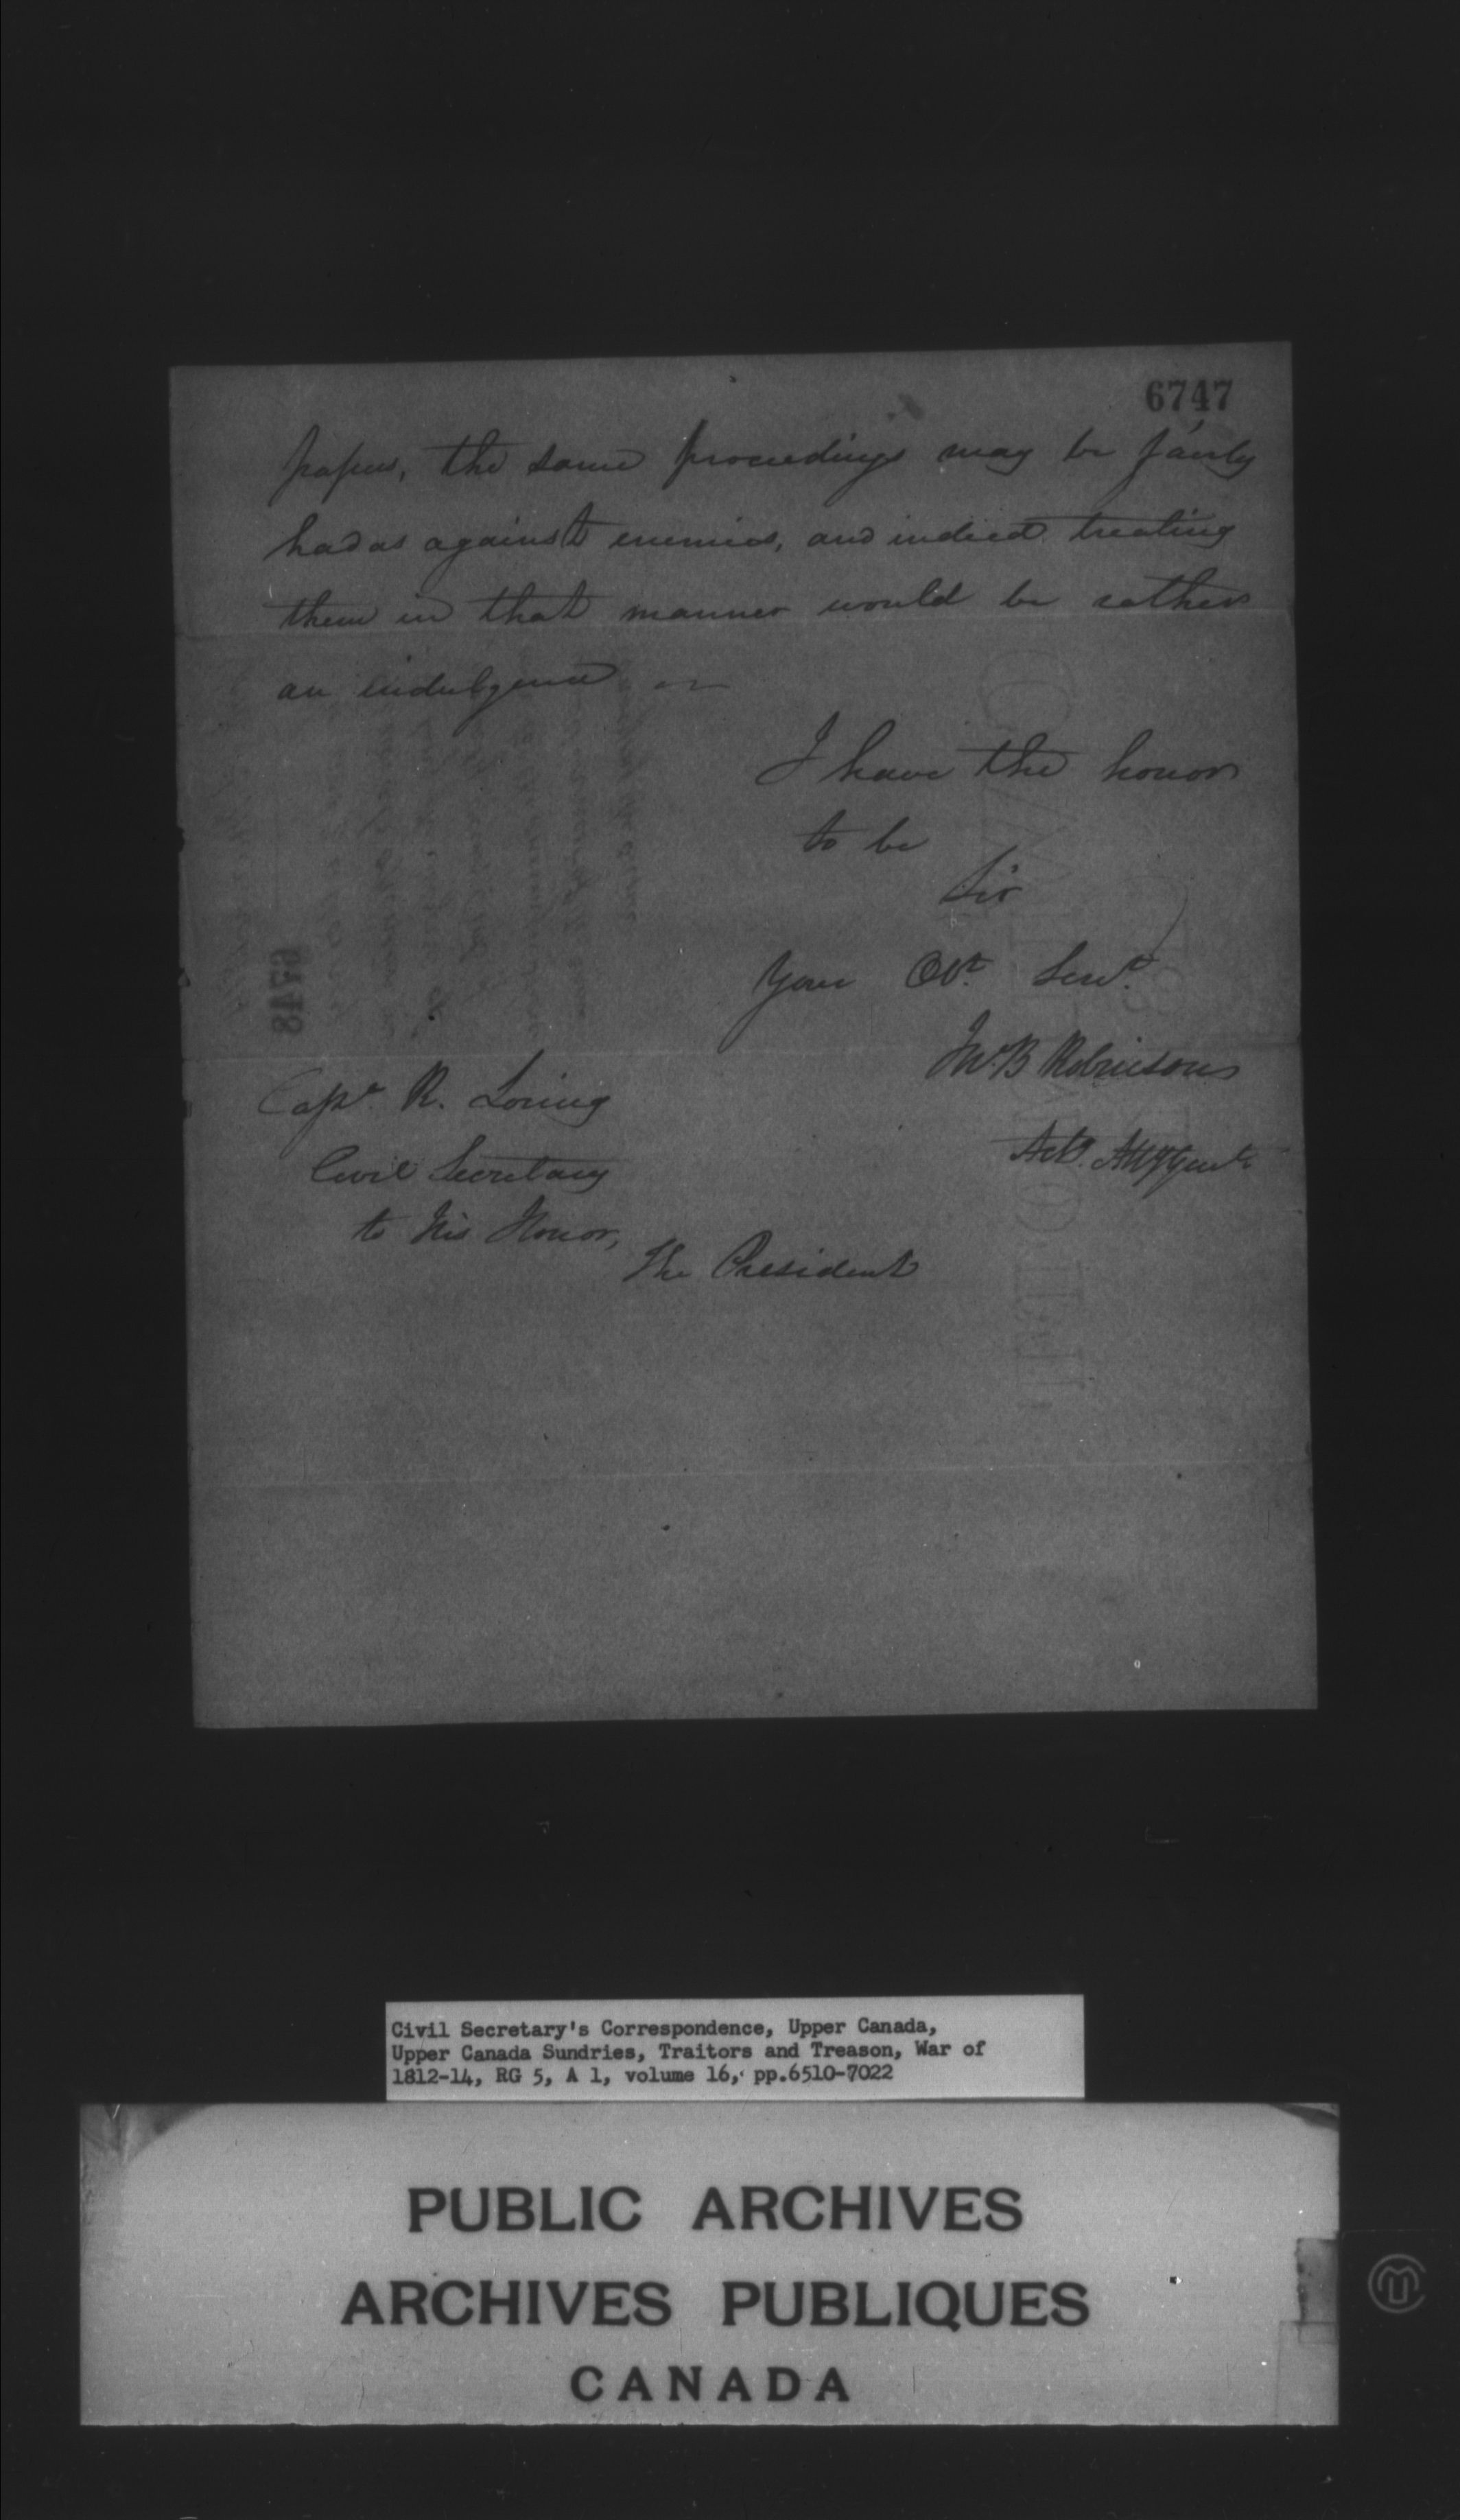 6747
papers, the same proceedings may be fairly
had as against enemies, and indeed treating
them in that manner would be rather
an indulgence
I have the honor
to be
Sir
Your Obt. Servt.
Jno. B Robinson
Actg. Atty Genl.
Capt. R. Loring
Civil Secretary
to His Honor,
The President
6748
Civil Secretary's Correspondence, Upper Canada,
Upper Canada Sundries, Traitors and Treason, War of
1812-14, RG 5, A 1, volume 16, pp.6510-7022
PUBLIC ARCHIVES
ARCHIVES PUBLIQUES
CANADA